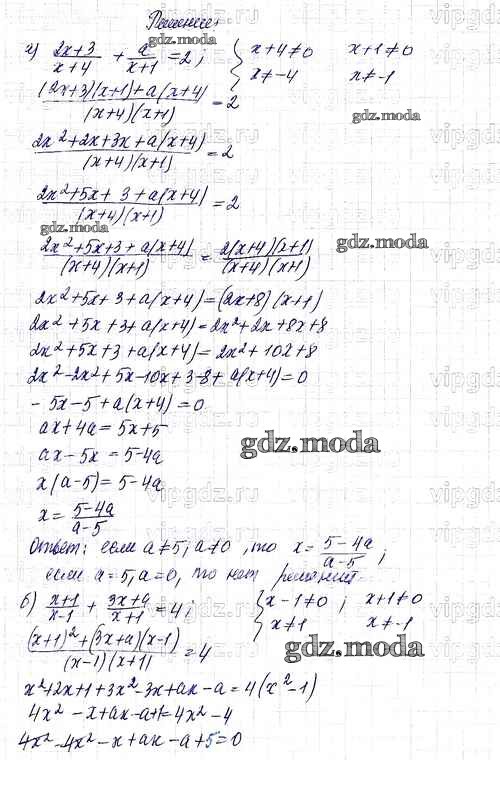 Решение:
а) (2x+3)/(x+4) + a/(x+1) = 2; { x+4≠0 x+1≠0
x≠-4 x≠-1
((2x+3)(x+1)+a(x+4))/((x+4)(x+1)) = 2
gdz.moda
(2x²+2x+3x+a(x+4))/((x+4)(x+1)) = 2
(2x²+5x+3+a(x+4))/((x+4)(x+1)) = 2
gdz.moda
(2x²+5x+3+a(x+4))/((x+4)(x+1)) = (2(x+4)(x+1))/((x+4)(x+1))
gdz.moda
2x²+5x+3+a(x+4)=(2x+8)(x+1)
2x²+5x+3+a(x+4)=2x²+2x+8x+8
2x²+5x+3+a(x+4)=2x²+10x+8
2x²-2x²+5x-10x+3-8+a(x+4)=0
-5x-5+a(x+4)=0
ax+4a=5x+5
ax-5x=5-4a
gdz.moda
x(a-5)=5-4a
x=(5-4a)/(a-5)
Ответ: если a≠5, a≠0, то x=(5-4a)/(a-5);
если a=5, a=0, то нет решений.
б) (x+1)/(x-1) + (3x+a)/(x+1) = 4; { x-1≠0; x+1≠0
x≠1 x≠-1
((x+1)²+(3x+a)(x-1))/((x-1)(x+1)) = 4
gdz.moda
x²+2x+1+3x²-3x+ax-a=4(x²-1)
4x²-x+ax-a+1=4x²-4
4x²-4x²-x+ax-a+5=0
gdz.moda